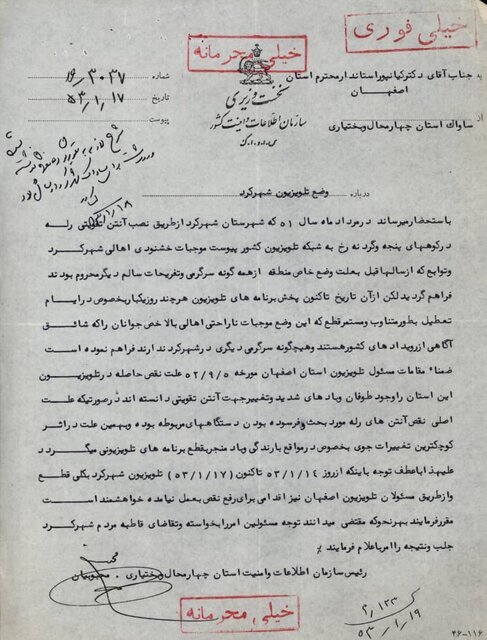 خیلی فوری
خیلی محرمانه
به جناب آقای دکتر کیانپور استاندار محترم استان
اصفهان
از ساواک استان چهارمحال وبختیاری
نخست وزیری
سازمان اطلاعات وامنیت کشور
س.ا.و.ا.ک
شماره ۳۰۳۷
تاریخ ۵۳/۱/۱۷
پیوست
۵۳/۱/۱۸
درباره وضع تلویزیون شهرکرد
باستحضار میرساند درمردادماه سال ۵۱ که شهرستان شهرکرد ازطریق نصب آنتن تقویتی رله
درکوههای پنجه وگردنه رخ به شبکه تلویزیون کشور پیوست موجبات خشنودی اهالی شهرکرد
وتوابع که ازسالها قبل بعلت وضع خاص منطقه ازهمه گونه سرگرمی وتفریحات سالم دیگر محروم بودند
فراهم گردید لکن ازآن تاریخ تاکنون پخش برنامه های تلویزیون هرچند روزیکبار بخصوص درایام
تعطیل بطور متناوب ومستمر قطع که این وضع موجبات ناراحتی اهالی بالاخص جوانان راکه شائق
آگاهی ازرویدادهای کشور هستند وهیچگونه سرگرمی دیگری درشهرکرد ندارند فراهم نموده است
ضمناً مقامات مسئول تلویزیون استان اصفهان مورخه ۵۲/۹/۵ علت نقص حاصله درتلویزیون
این استان راوجود طوفان وباد های شدید وتغییر جهت آنتن تقویتی دانسته اند درصورتیکه علت
اصلی نقص آنتن های رله مورد بحث وفرسوده بودن دستگاههای مربوطه بوده وبهمین علت دراثر
کوچکترین تغییرات جوی بخصوص درمواقع بارندگی وباد منجربقطع برنامه های تلویزیونی میگردد
علیهذا باعطف توجه باینکه ازروز ۵۳/۱/۱۴ تاکنون (۵۳/۱/۱۷) تلویزیون شهرکرد بکلی قطع
وازطریق مسئولان تلویزیون اصفهان نیز اقدامی برای رفع نقص بعمل نیامده خواهشمند است
مقررفرمایند بهرنحوکه مقتضی میدانند توجه مسئولین امررابخواسته وتقاضای قاطبه مردم شهرکرد
جلب ونتیجه راامربا علام فرمایند ٪
رئیس سازمان اطلاعات وامنیت استان چهارمحال وبختیاری . محبوبیان
خیلی محرمانه
۲/۱۲۳
۵۳/۱/۱۹
۴۶-۱۱۶